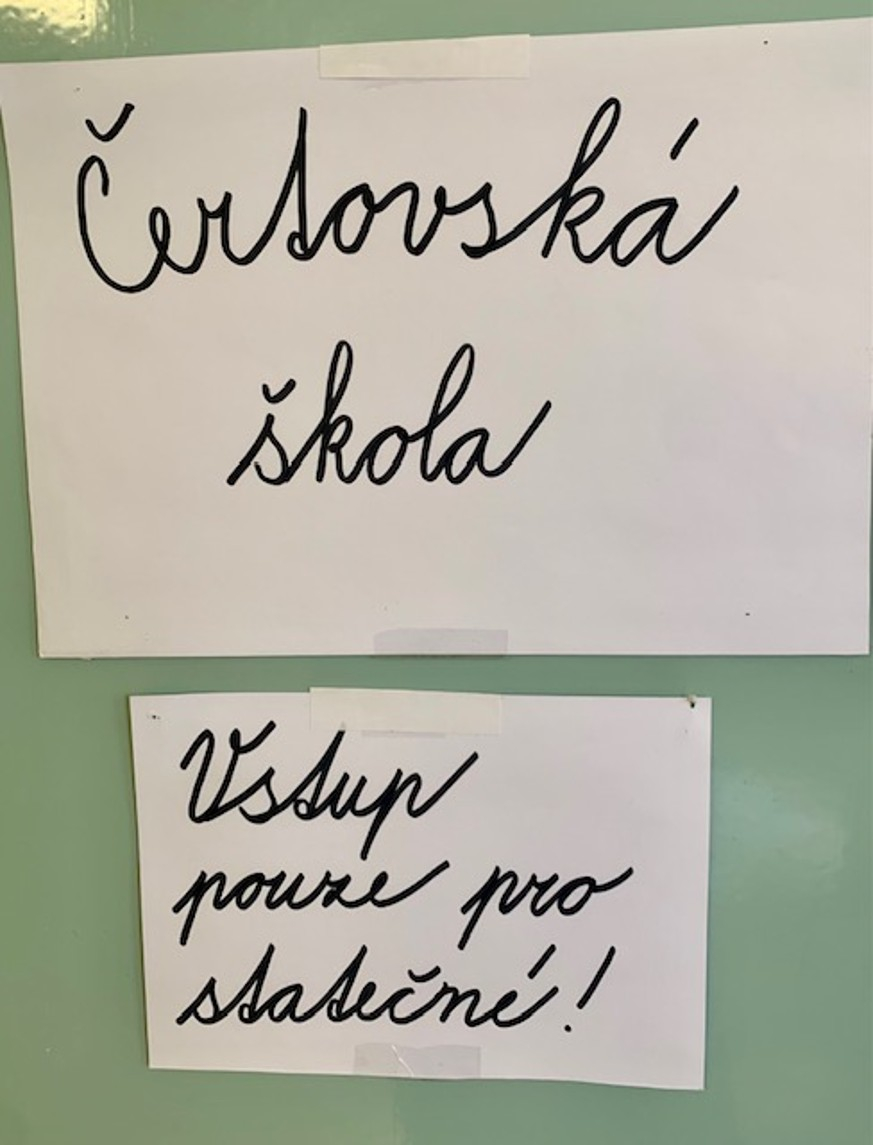 Čertovská
škola
Vstup
pouze pro
statečné!